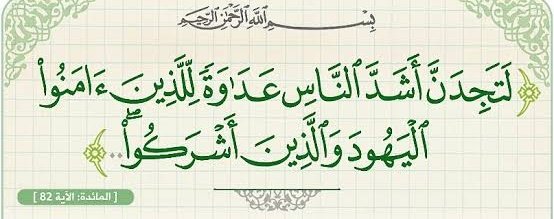 بِسْمِ اللَّهِ الرَّحْمَٰنِ الرَّحِيمِ
﴿ لَتَجِدَنَّ أَشَدَّ ٱلنَّاسِ عَدَٰوَةً لِّلَّذِينَ ءَامَنُوا۟
ٱلْيَهُودَ وَٱلَّذِينَ أَشْرَكُوا۟ۖ.. ﴾
[ المائدة: الآية 82 ]